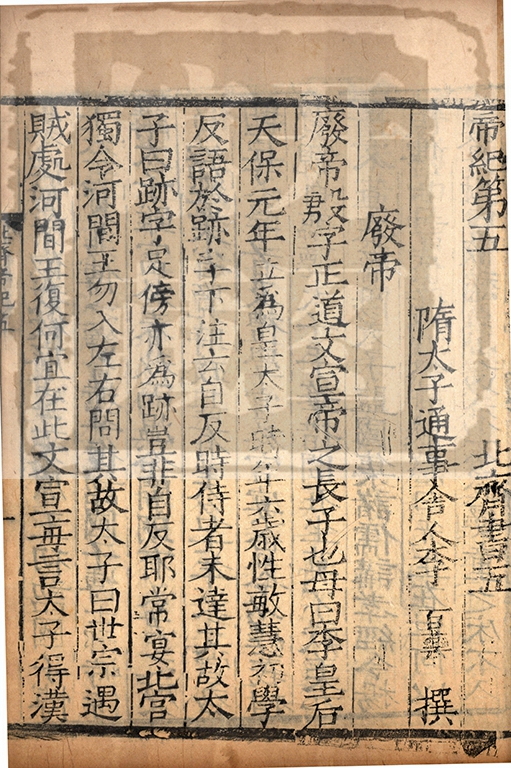 帝紀第五 北齊書五
隋太子通事舍人李 百藥 撰
廢帝
廢帝殷字正道文宣帝之長子也母曰李皇后
天保元年立爲皇太子時年六歲性敏慧初學
反語於跡字下注云自反時侍者未達其故太
子曰跡字足傍亦爲跡豈非自反耶常宴北宮
獨令河間王勿入左右問其故太子曰世宗遇
賊處河間王復何宜在此文宣再言太子得漢